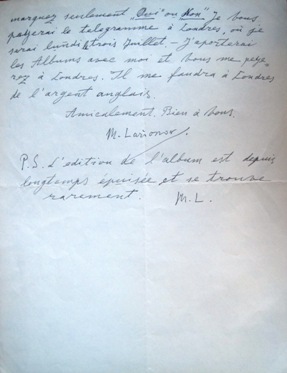 marquez seulement "Oui" ou "Non" Je vous
payerai le telegramme à Londres, où je
serai lundi trois Juillet - J'aporterai
les Albums avec moi et vous me paye-
rez à Londres. Il me faudra à Londres
de l'argent anglais.
Amicalement. Bien à vous.
M. Larionov.
P.S. L'edition de l'album est depuis
longtemps épuisée et se trouve
rarement. M.L.